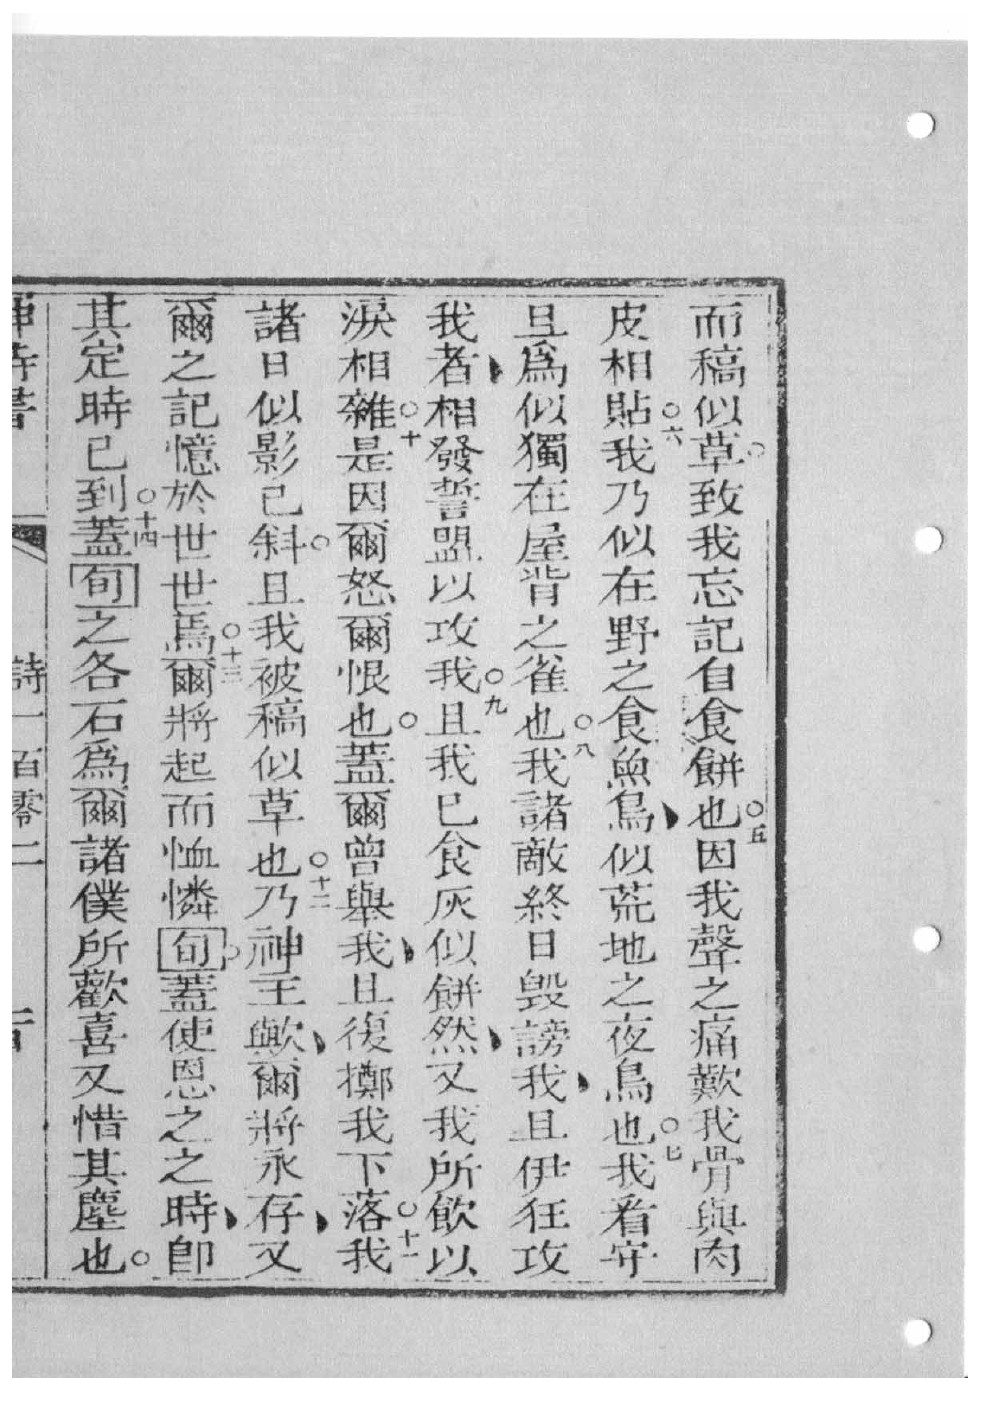 而稿似草○致我忘記自食餅也○五因我聲之痛歎我骨與肉
皮相貼○六我乃似在野之食魚鳥、似荒地之夜鳥也○七我看守
且爲似獨在屋背之雀也○八我諸敵終日毁謗我、且伊狂攻
我者、相發誓盟以攻我○九且我已食灰似餅然、又我所飲以
淚相雜○十是因爾怒爾恨也○蓋爾曾舉我、且復擲我下落○十一我
諸日似影已斜○且我被稿似草也○十二乃神主歟、爾將永存、又
爾之記憶於世世焉○十三爾將起而恤憐旬○蓋使恩之之時、卽
其定時已到○十四蓋旬之各石爲爾諸僕所歡喜又惜其塵也○
詩書
詩一百零二